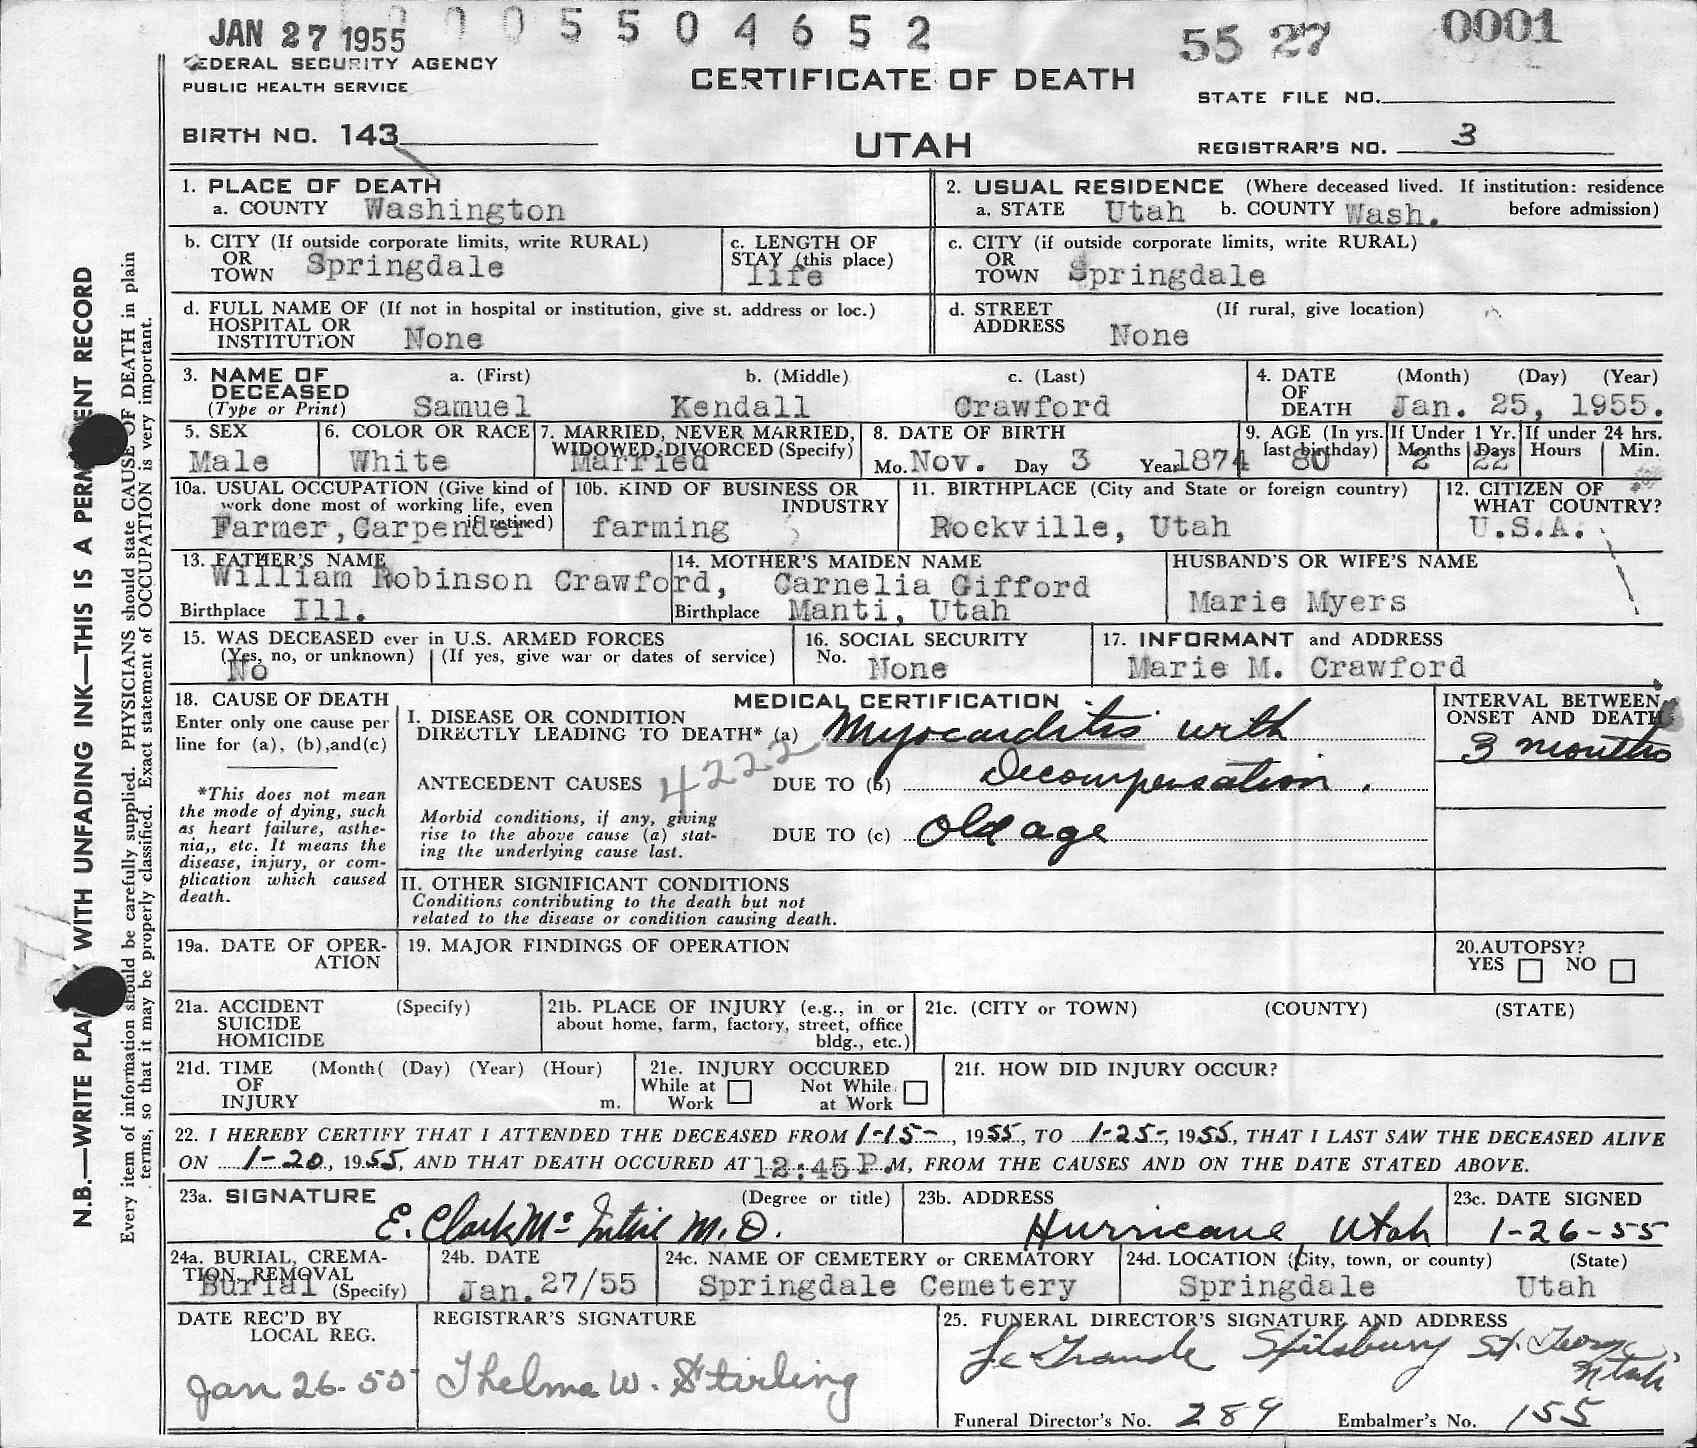 JAN 27 1955 0 0 5 5 0 4 6 5 2 55 27 0001
FEDERAL SECURITY AGENCY
PUBLIC HEALTH SERVICE
CERTIFICATE OF DEATH
STATE FILE NO.
BIRTH NO. 143
UTAH
REGISTRAR'S NO. 3
1. PLACE OF DEATH
a. COUNTY Washington
2. USUAL RESIDENCE (Where deceased lived. If institution: residence
a. STATE Utah b. COUNTY Wash. before admission)
b. CITY (If outside corporate limits, write RURAL)
OR
TOWN Springdale
c. LENGTH OF
STAY (this place)
life
c. CITY (if outside corporate limits, write RURAL)
OR
TOWN Springdale
d. FULL NAME OF (If not in hospital or institution, give st. address or loc.)
HOSPITAL OR
INSTITUTION None
d. STREET (If rural, give location)
ADDRESS None
3. NAME OF a. (First) b. (Middle) c. (Last)
DECEASED
(Type or Print) Samuel Kendall Crawford
4. DATE (Month) (Day) (Year)
OF
DEATH Jan. 25, 1955.
5. SEX
Male
6. COLOR OR RACE
White
7. MARRIED, NEVER MARRIED,
WIDOWED, DIVORCED (Specify)
Married
8. DATE OF BIRTH
Mo. Nov. Day 3 Year 1874
9. AGE (In yrs.
last birthday) 80
If Under 1 Yr.
Months Days
2 22
If under 24 hrs.
Hours Min.
10a. USUAL OCCUPATION (Give kind of
work done most of working life, even
if retired)
Farmer, Carpender
10b. KIND OF BUSINESS OR
INDUSTRY
farming
11. BIRTHPLACE (City and State or foreign country)
Rockville, Utah
12. CITIZEN OF
WHAT COUNTRY?
U.S.A.
13. FATHER'S NAME
William Robinson Crawford,
Birthplace Ill.
14. MOTHER'S MAIDEN NAME
Carnelia Gifford
Birthplace Manti, Utah
HUSBAND'S OR WIFE'S NAME
Marie Myers
15. WAS DECEASED ever in U.S. ARMED FORCES
(Yes, no, or unknown) (If yes, give war or dates of service)
No
16. SOCIAL SECURITY
No. None
17. INFORMANT and ADDRESS
Marie M. Crawford
18. CAUSE OF DEATH
Enter only one cause per
line for (a), (b), and (c)
*This does not mean
the mode of dying, such
as heart failure, asthe-
nia,, etc. It means the
disease, injury, or com-
plication which caused
death.
MEDICAL CERTIFICATION
I. DISEASE OR CONDITION
DIRECTLY LEADING TO DEATH* (a) Myocarditis with
ANTECEDENT CAUSES 4222 DUE TO (b) Decompensation.
Morbid conditions, if any, giving
rise to the above cause (a) stat-
ing the underlying cause last.
DUE TO (c) Old age
INTERVAL BETWEEN
ONSET AND DEATH
3 months
II. OTHER SIGNIFICANT CONDITIONS
Conditions contributing to the death but not
related to the disease or condition causing death.
19a. DATE OF OPER-
ATION
19. MAJOR FINDINGS OF OPERATION
20. AUTOPSY?
YES NO
21a. ACCIDENT (Specify)
SUICIDE
HOMICIDE
21b. PLACE OF INJURY (e.g., in or
about home, farm, factory, street, office
bldg., etc.)
21c. (CITY or TOWN) (COUNTY) (STATE)
21d. TIME (Month( (Day) (Year) (Hour)
OF
INJURY m.
21e. INJURY OCCURED
While at Not While
Work at Work
21f. HOW DID INJURY OCCUR?
22. I HEREBY CERTIFY THAT I ATTENDED THE DECEASED FROM 1-15-, 1955, TO 1-25-, 1955, THAT I LAST SAW THE DECEASED ALIVE
ON 1-20, 1955, AND THAT DEATH OCCURED AT 12:45 P.M, FROM THE CAUSES AND ON THE DATE STATED ABOVE.
23a. SIGNATURE (Degree or title)
E. Clark McIntire M.D.
23b. ADDRESS
Hurricane, Utah
23c. DATE SIGNED
1-26-55
24a. BURIAL, CREMA-
TION, REMOVAL
Burial (Specify)
24b. DATE
Jan. 27/55
24c. NAME OF CEMETERY or CREMATORY
Springdale Cemetery
24d. LOCATION (City, town, or county) (State)
Springdale Utah
DATE REC'D BY
LOCAL REG.
Jan 26-55
REGISTRAR'S SIGNATURE
Thelma W. Stirling
25. FUNERAL DIRECTOR'S SIGNATURE AND ADDRESS
LeGrande Spilsbury St. George,
Utah
Funeral Director's No. 289 Embalmer's No. 155
N.B.—WRITE PLAINLY WITH UNFADING INK—THIS IS A PERMANENT RECORD
Every item of information should be carefully supplied. PHYSICIANS should state CAUSE OF DEATH in plain
terms, so that it may be properly classified. Exact statement of OCCUPATION is very important.